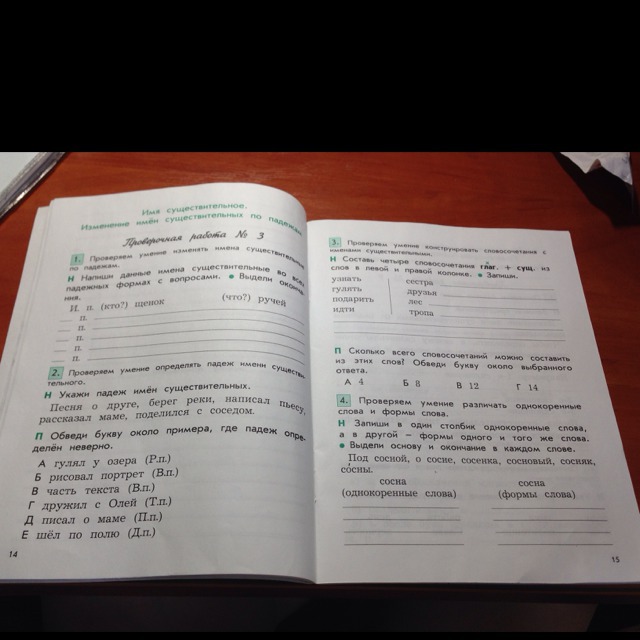 Имя существительное.
Изменение имён существительных по падежам
Проверочная работа № 3
1. Проверяем умение изменять имена существительные
по падежам.
Н Напиши данные имена существительные во всех
падежных формах с вопросами. • Выдели оконча-
ния.
И. п. (кто?) щенок (что?) ручей
п.
п.
п.
п.
п.
2. Проверяем умение определять падеж имени существи-
тельного.
Н Укажи падеж имён существительных.
Песня о друге, берег реки, написал пьесу,
рассказал маме, поделился с соседом.
П Обведи букву около примера, где падеж опре-
делён неверно.
А гулял у озера (Р.п.)
Б рисовал портрет (В.п.)
В часть текста (В.п.)
Г дружил с Олей (Т.п.)
Д писал о маме (П.п.)
Е шёл по полю (Д.п.)
14
3. Проверяем умение конструировать словосочетания с
именами существительными.
Н Составь четыре словосочетания глаг. + сущ. из
слов в левой и правой колонке. • Запиши.
узнать сестра
гулять друзья
подарить лес
идти тропа
П Сколько всего словосочетаний можно составить
из этих слов? Обведи букву около выбранного
ответа.
А 4 Б 8 В 12 Г 14
4. Проверяем умение различать однокоренные
слова и формы слова.
Н Запиши в один столбик однокоренные слова,
а в другой – формы одного и того же слова.
• Выдели основу и окончание в каждом слове.
Под сосной, о сосне, сосенка, сосновый, сосняк,
со́сны.
сосна сосна
(однокоренные слова) (формы слова)
15